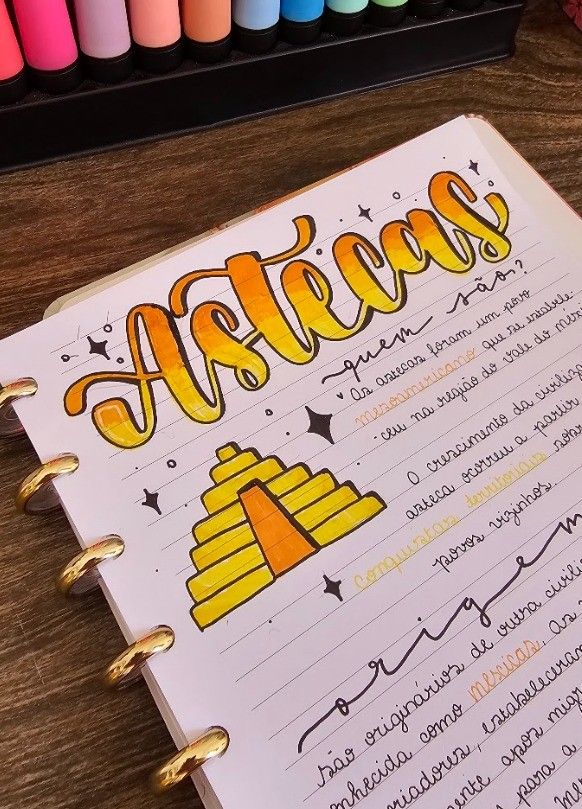 Astecas
quem são?
Os astecas foram um povo
mesoamericano que se estabele-
ceu na região do vale do
O crescimento da
asteca ocorreu a partir
conquistas territoriais
povos vizinhos.
origem
são originários de outra
conhecida como mexicas. Os
estabeleceram
após
para a